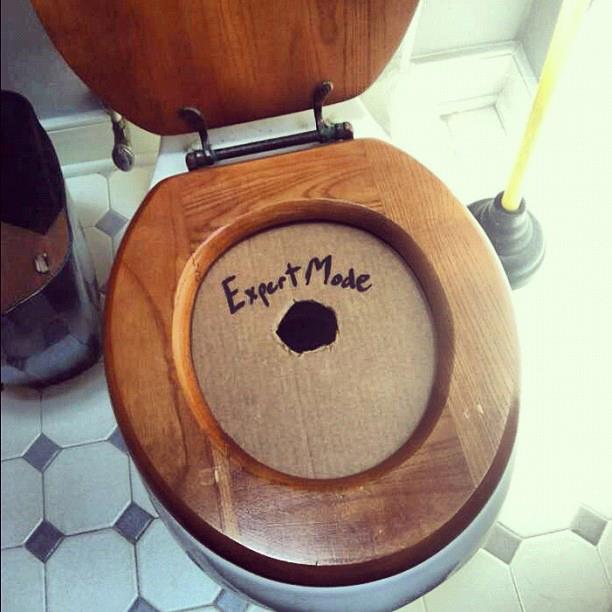 Expert Mode